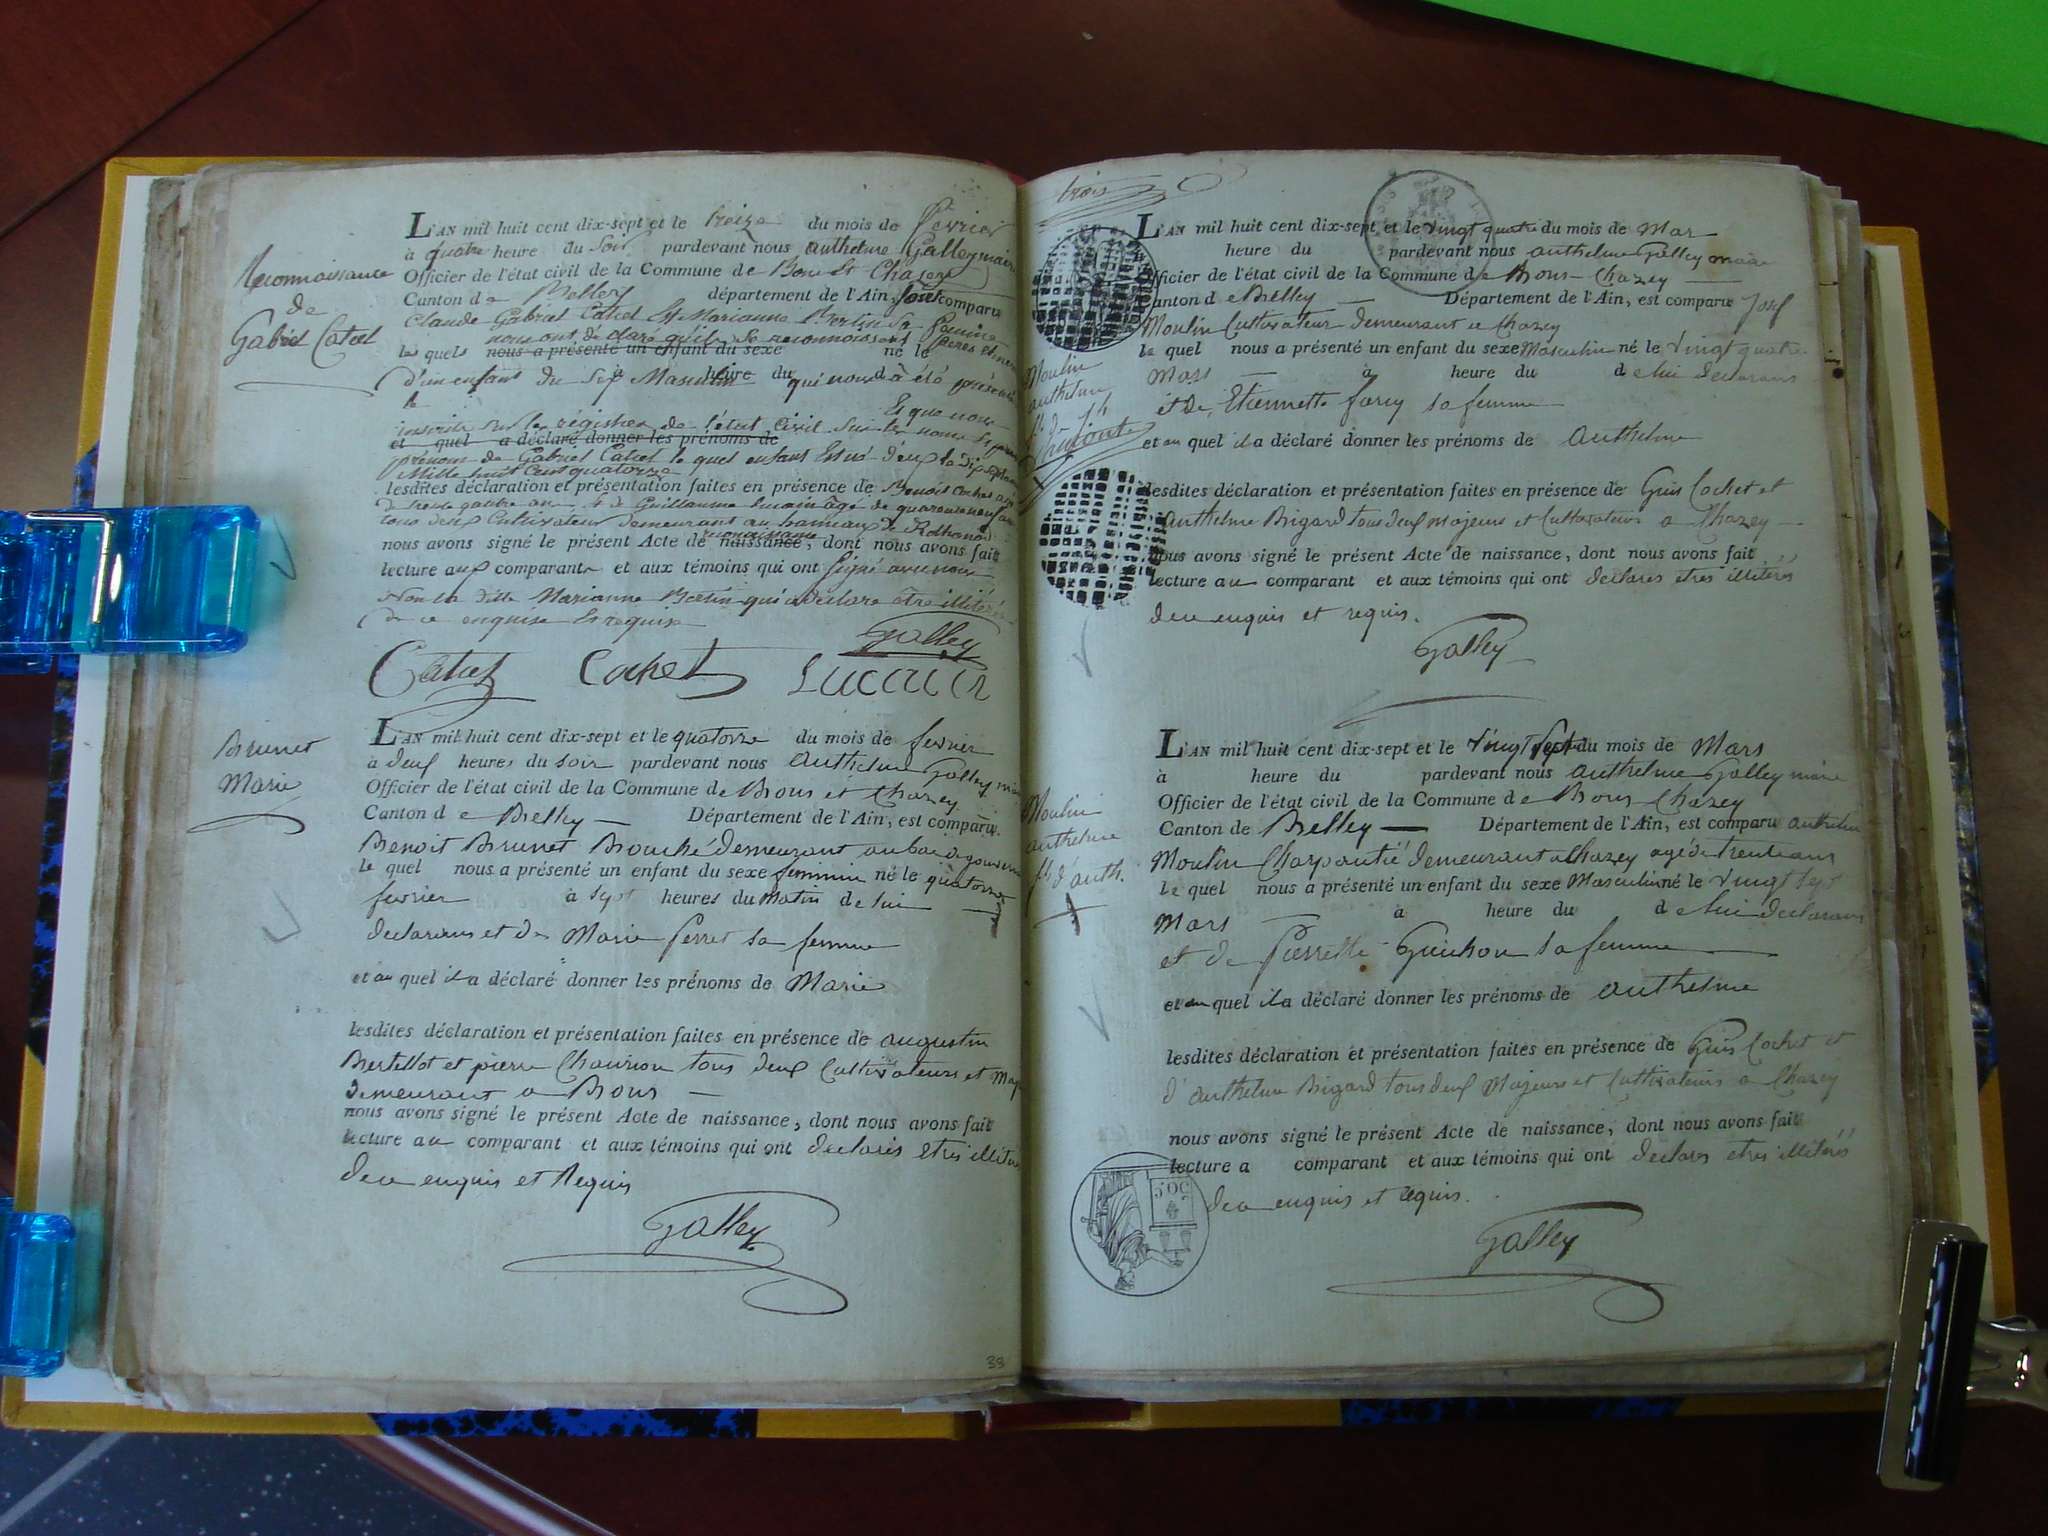 Reconnaissance
de
Gabriel Catiel
L'AN mil huit cent dix-sept et le treize du mois de février
à quatre heure du soir pardevant nous anthelme Galley maire
Officier de l'état civil de la Commune de Bons et Chazey
Canton de Belley département de l'Ain, sont comparu
Claude Gabriel Catiel Et Marianne Bertin sa femme
nous ont déclaré qu'ils se reconnoissent pères et mere
les quels nous a présenté un enfant du sexe né le
d'un enfans du sexe Masculin à heure du qui nous à été présenté
le Et que nous
inscrite sur les régistres de l'état civil sur les noms Et
et quel a déclaré donner les prénoms de
prénom de Gabriel Catiel le quel enfant Est né deux
Mille huit Cent quatorze
lesdites déclaration et présentation faites en présence de Benoit Cochet
de trente quatre an & de Guillaume Lucain âgé de quarante neuf ans
tous deux Cultivateur demeurant au hameau de Rothonod
reconaissance
nous avons signé le présent Acte de naissance, dont nous avons fait
lecture aux comparants et aux témoins qui ont signé avec nous
Non la ditte Marianne Bertin qui a déclaré etre illitérée
de ce enquise Et requise
Galley
Catiel Cochet Lucain
Brunet
Marie
L'AN mil huit cent dix-sept et le quatorze du mois de fevrier
à deux heures du soir pardevant nous anthelme Galley maire
Officier de l'état civil de la Commune de Bons et Chazey
Canton de Belley Département de l'Ain, est comparu
Benoit Brunet Bouché demeurant au bac
le quel nous a présenté un enfant du sexe feminin né le quatorze
fevrier à sept heures du matin de lui
declarans et de Marie Perret sa femme
et au quel il a déclaré donner les prénoms de Marie
lesdites déclaration et présentation faites en présence de augustin
Bertellot et pierre Chaurion tous deux Cultivateurs et
demeurant a Bons
nous avons signé le présent Acte de naissance, dont nous avons fait
lecture au comparant et aux témoins qui ont declarés etres
de ce enquis et Requis
Galley
33
trois
Moulin
anthelme
L'AN mil huit cent dix-sept et le vingt quatre du mois de Mar
heure du pardevant nous anthelme Galley maire
Officier de l'état civil de la Commune de Bons Chazey
Canton de Belley Département de l'Ain, est comparu Josef
Moulin Cultivateur demeurant a Chazey
le quel nous a présenté un enfant du sexe Masculin né le vingt quatre
Mars à heure du de lui declarans
et de Etiennette farcy sa femme
et au quel il a déclaré donner les prénoms de anthelme
lesdites déclaration et présentation faites en présence de Guis Cochet et
anthelme Brigard tous deux majeurs et Cultivateurs a Chazey
nous avons signé le présent Acte de naissance, dont nous avons fait
lecture au comparant et aux témoins qui ont declarés etres illiterés
de ce enquis et requis.
Galley
Moulin
anthelme
fils d'anth.
L'AN mil huit cent dix-sept et le vingt sept du mois de Mars
à heure du pardevant nous anthelme Galley maire
Officier de l'état civil de la Commune de Bons Chazey
Canton de Belley Département de l'Ain, est comparu anthelme
Moulin Charpantié demeurant a Chazey agé de trente ans
le quel nous a présenté un enfant du sexe Masculin né le vingt sept
Mars à heure du de lui declarans
et de Pierrette Guichon sa femme
et au quel il a déclaré donner les prénoms de anthelme
lesdites déclaration et présentation faites en présence de Guis Cochet et
d'anthelme Brigard tous deux Majeurs et Cultivateurs a Chazey
nous avons signé le présent Acte de naissance, dont nous avons fait
lecture a comparant et aux témoins qui ont declarés etres illiterés
50C.
de ce enquis et requis.
Galley